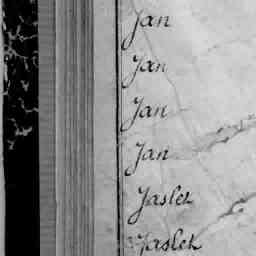 Jan
Jan
Jan
Jan
Jasleh
Jasleh